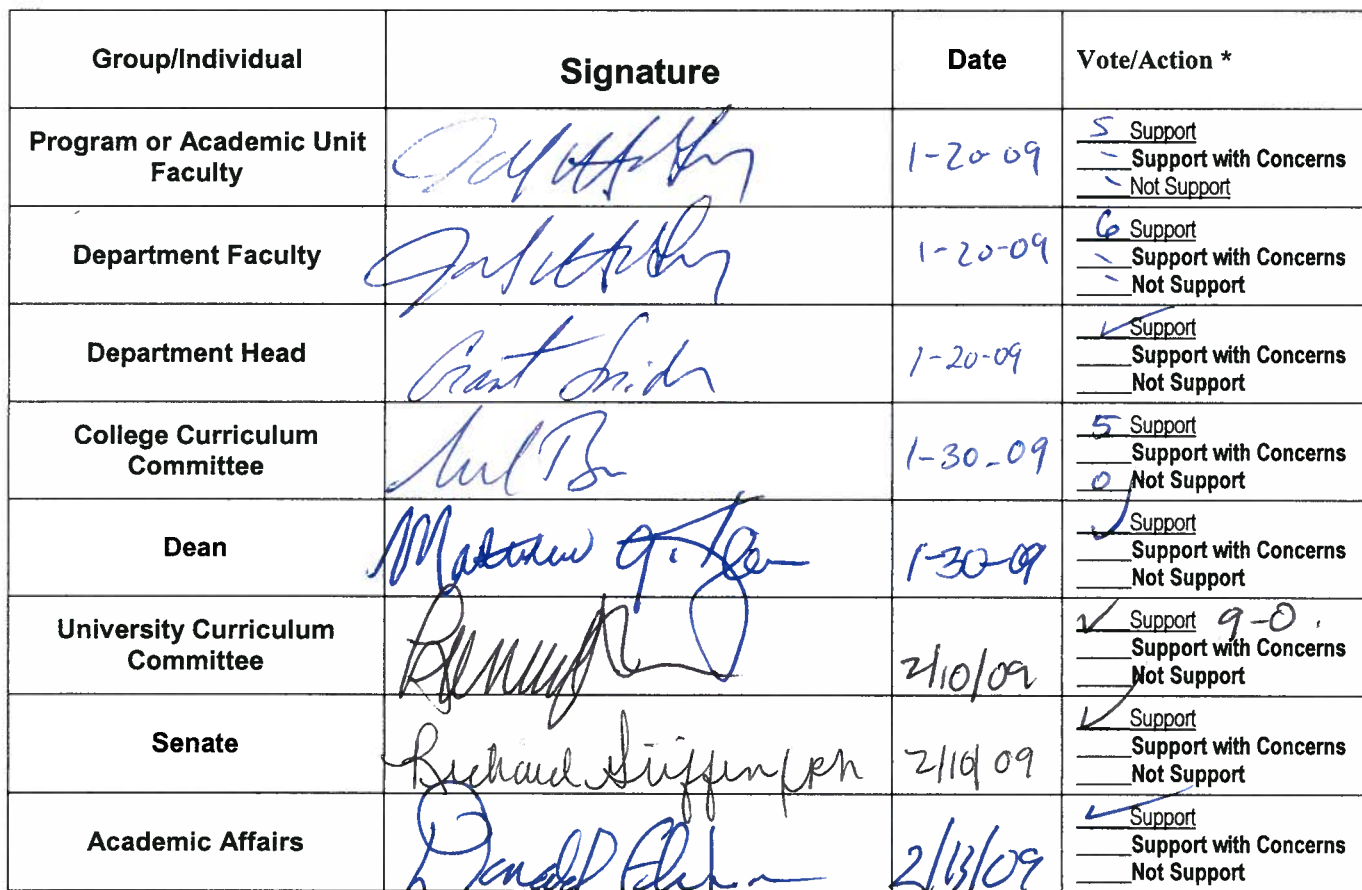 Group/Individual Signature Date Vote/Action *
Program or Academic Unit
Faculty
1-20-09
5 Support
- Support with Concerns
- Not Support
Department Faculty
1-20-09
6 Support
- Support with Concerns
- Not Support
Department Head
Grant Snider
1-20-09
✓ Support
Support with Concerns
Not Support
College Curriculum
Committee
1-30-09
5 Support
Support with Concerns
0 Not Support
Dean
Matthew
1-30-09
✓ Support
Support with Concerns
Not Support
University Curriculum
Committee
2/10/09
✓ Support 9-0.
Support with Concerns
Not Support
Senate
Richard
2/10/09
✓ Support
Support with Concerns
Not Support
Academic Affairs
Donald
2/13/09
✓ Support
Support with Concerns
Not Support